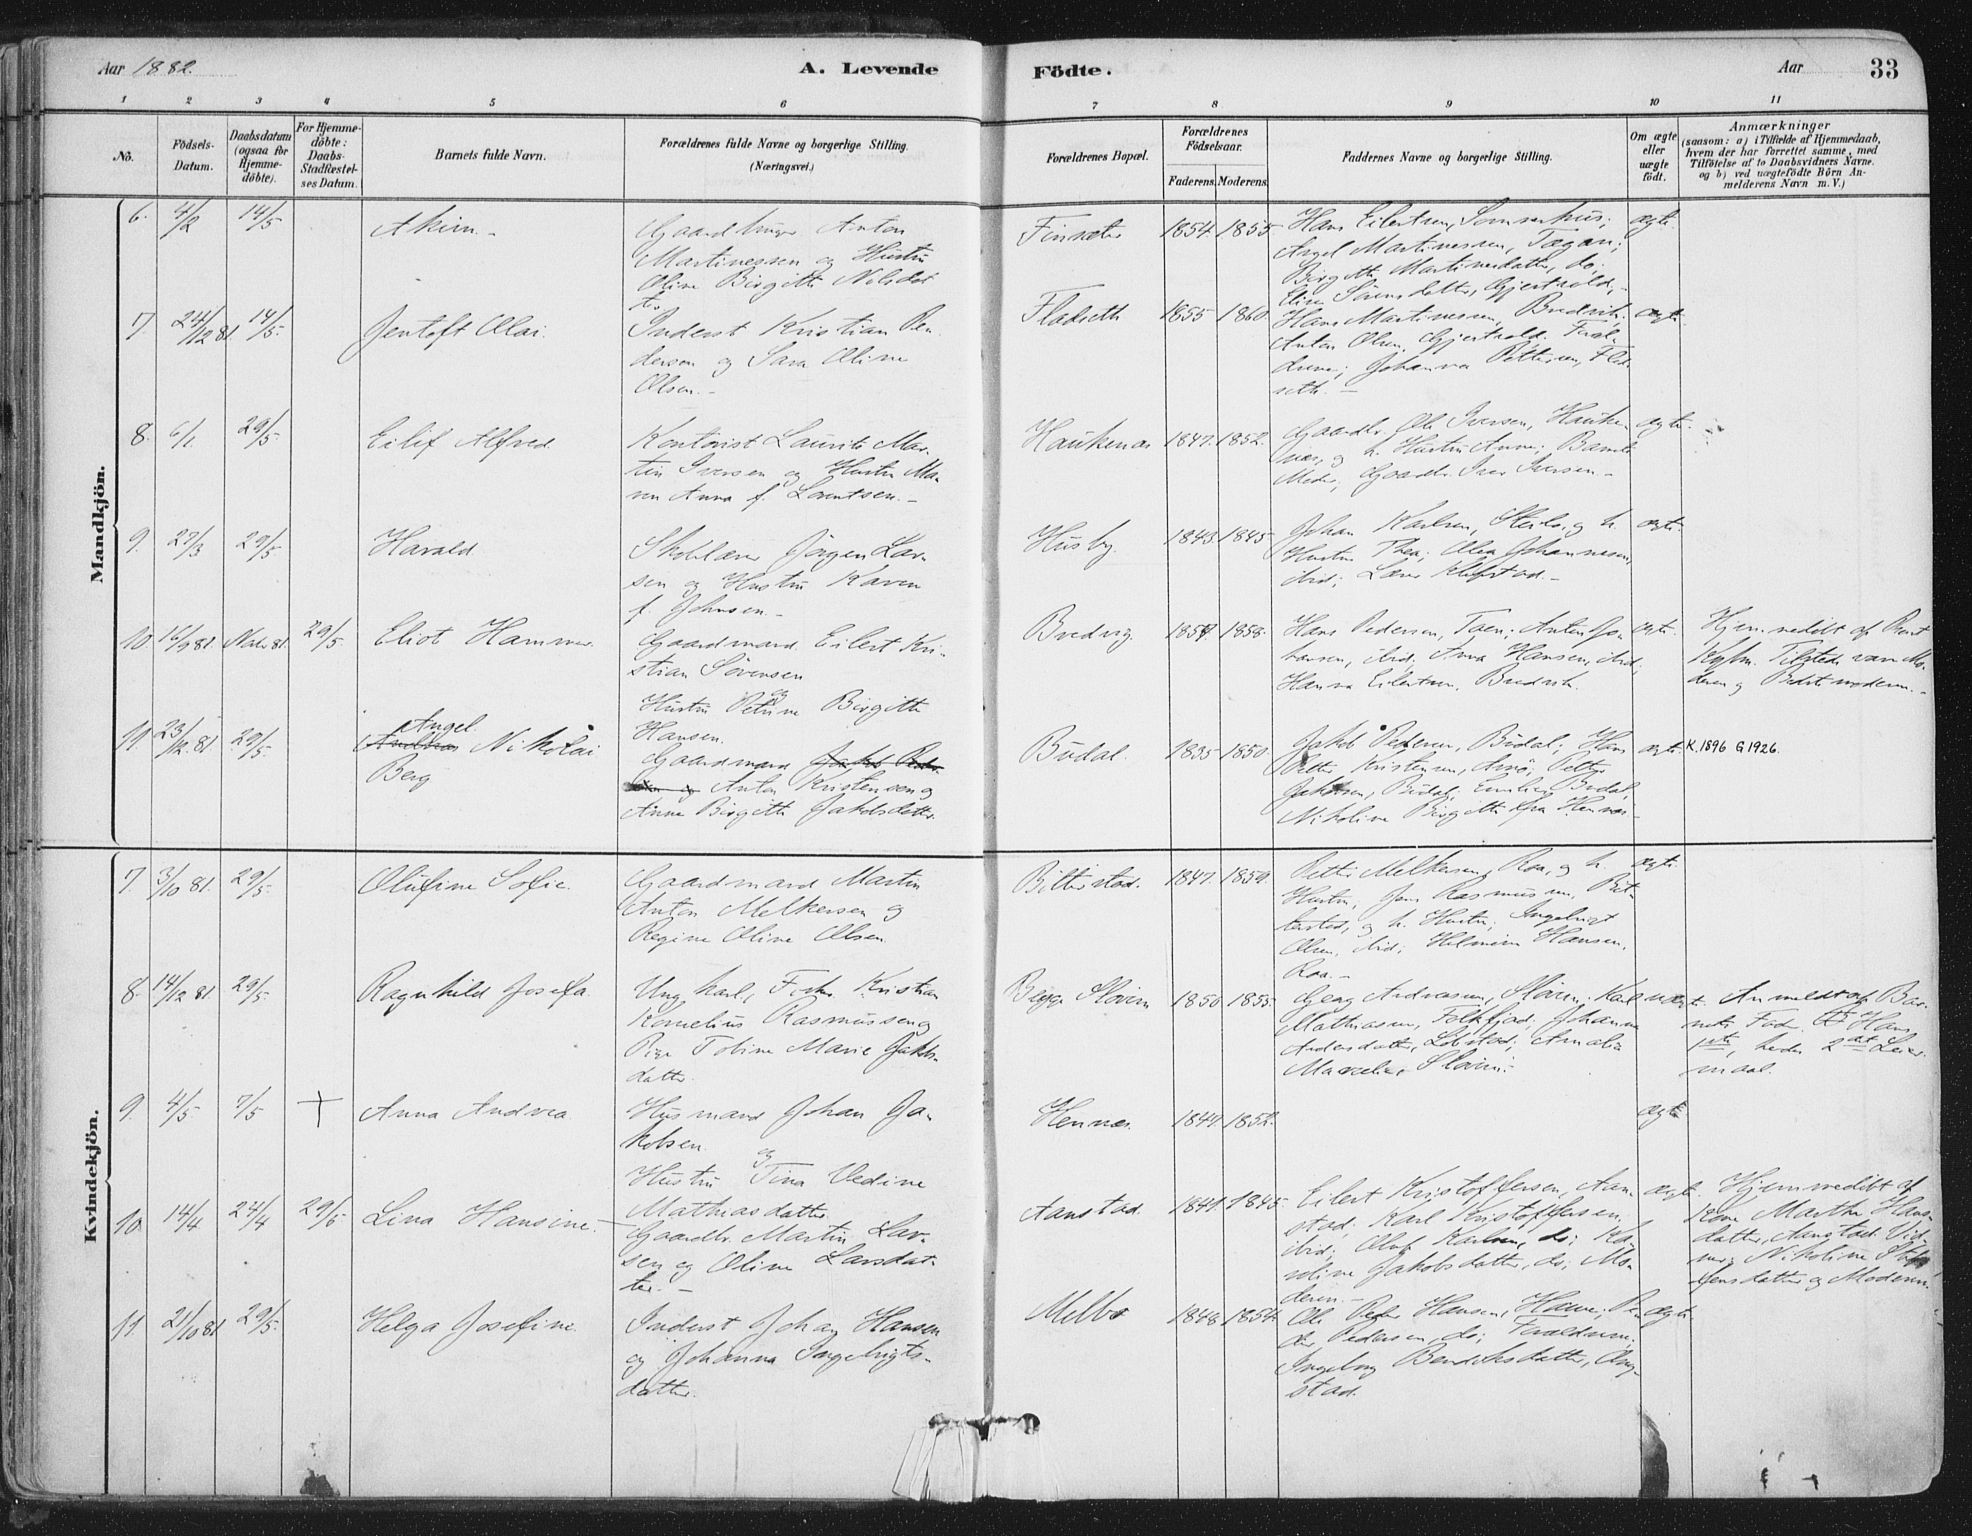 Aar 1882.
A. Levende
Födte.
Aar
33
1 2 3 4 5 6 7 8 9 10 11
No.
Födsels-
Datum.
Daabsdatum
(ogsaa for
Hjemme-
döbte).
For Hjemme-
döbte:
Daabs-
Stadfæstel-
ses Datum.
Barnets fulde Navn.
Forældrenes fulde Navne og borgerlige Stilling.
(Næringsvei.)
Forældrenes Bopæl.
Forældrenes
Födselsaar.
Faderens. Moderens.
Faddernes Navne og borgerlige Stilling.
Om ægte
eller
uægte
födt.
Anmærkninger
(saasom: a) i Tilfælde af Hjemmedaab,
hvem der har forrettet samme, med
Tilföielse af to Daabsvidners Navne.
og b) ved uægtefödte Börn An-
melderens Navn m. V.)
Mandkjön.
6. 4/2 14/5
Akim.
Gaardbruger Anton
Martinessen og Hustru
Oline Birgitte Nilsdat
ter.
Finsæter 1854. 1855
Hans Eilertsen, Sommerhus;
Angel Martinessen,
Birgitte Martinesdatter, do;
Elise Sörensdatter, Gjertvold.
ægte.
7. 24/12 81. 14/5.
Jentoft Olai.
Inderst Kristian Pe
dersen og Sara Oline
Olsen.
Fladseth 1855 1860
Hans Martinessen, Bredvik;
Anton Olsen, Gjertvold. Foræl-
drene; Johanna Pettersen, Flad
seth.
ægte.
8. 6/1. 29/5.
Eilif Alfred.
Kontorist Laurits Mar-
tin Iversen og Hustru Ma-
ren Anna f. Lorentsen.
Haukenæs 1847. 1852.
Gaardbr. Ole Iversen, Hauke
næs, og h. Hustru Anne; Barnets
Moder, Gaardbr. Iver Iversen.
ægte.
9. 27/3 29/5
Harald
Skolelærer Jörgen Lar
sen og Hustru Karen
f. Johnsen.
Husby. 1843. 1845
Johan Karlsen, Steilo, og h.
Hustru Thea; Olea Johannesen,
ibid; Lærer Klefstad.
ægte.
10. 16/9 81. Natv 81. 29/5.
Eliot Hammer.
Gaardmand Eilert Kri-
stian Sörensen
og
Hustru Petrine Birgitte
Hansen.
Bredvig. 1858.
Hans Pedersen, Taen; Anton Jo
hansen, ibid. Anna Hansen, ibid;
Hanna Eilertsen, Bredvik.
ægte.
Hjem. vedöbt af Bernt
Tilstede vare Mo
deren og Bedstemoderen.
11. 23/12. 81. 29/5.
Angel.
Andreas Nikolai
Berg
Gaardmand Jakob Peder
sen og Anton Kristensen og
Anne Birgitte Jakobsdatter.
Budal. 1835 1850
Jakob Pedersen, Budal; Hans
Petter Kristensen, Arnö; Petter
Jakobsen, Budal; Emilie Budal,
Nikoline Birgitte fra Hennes
ægte.
K. 1896 G 1926.
Kvindekjön.
7. 3/10 81. 29/5.
Olufine Sofie.
Gaardmand Martin
Anton Melkersen og
Regine Oline Olsen.
Bitterstad. 1847. 1859.
Petter Melkersen, Roa, og h.
Hustru, Jens Rasmussen, Bit-
terstad, og h. Hustru; Ingebrigt
Olsen, ibid; Helmine Hansen,
Roa.
ægte.
8. 14/12 81 29/5
Ragnhild Josefa.
Ung karl, Fisker Kristian
Kornelius Rasmussen og
Pige Tobine Marie Jakobs-
datter.
Begge Slotvin 1850 1855.
Georg Andreassen, Karl
Mathiasen, Folkfjord, Johanna
Andersdatter, Amalia
Marcelie,
uægte.
Anmeldt af Bar-
nets Fader. Hans
1ste, hendes 2det Leier
maal.
9. 4/5. 7/5 +
Anna Andrea.
Husmand Johan Ja-
kobsen.
og
Hustru Tina Vedine
Mathiasdatter.
Hennæs. 1849. 1852.
ægte
10. 14/4 24/4 29/5
Lina Hansine.
Gaardbr. Martin Lar-
sen og Oline Larsdat-
ter.
Aanstad. 1841. 1845.
Eilert Kristoffersen, Aan-
stad, Karl Kristoffersen,
ibid; Oluf Karlsen, do; Ka-
roline Jakobsdatter, do; Mo-
deren.
ægte.
Hjemmedöbt af
Kone Marthe Hans-
datter, Aanstad. Vid-
ner: Nikoline
fensdatter og Moderen.
11 21/10 81 29/5.
Helga Josefine
Inderst Johan Hansen
og Johanna Ingebrigts-
datter.
Melbo 1848 1854.
Ole Peder Hansen, Haune; Pe
der Pedersen, do; Forældrene;
Ingeborg Bendiksdatter, Ang-
stad.
ægte